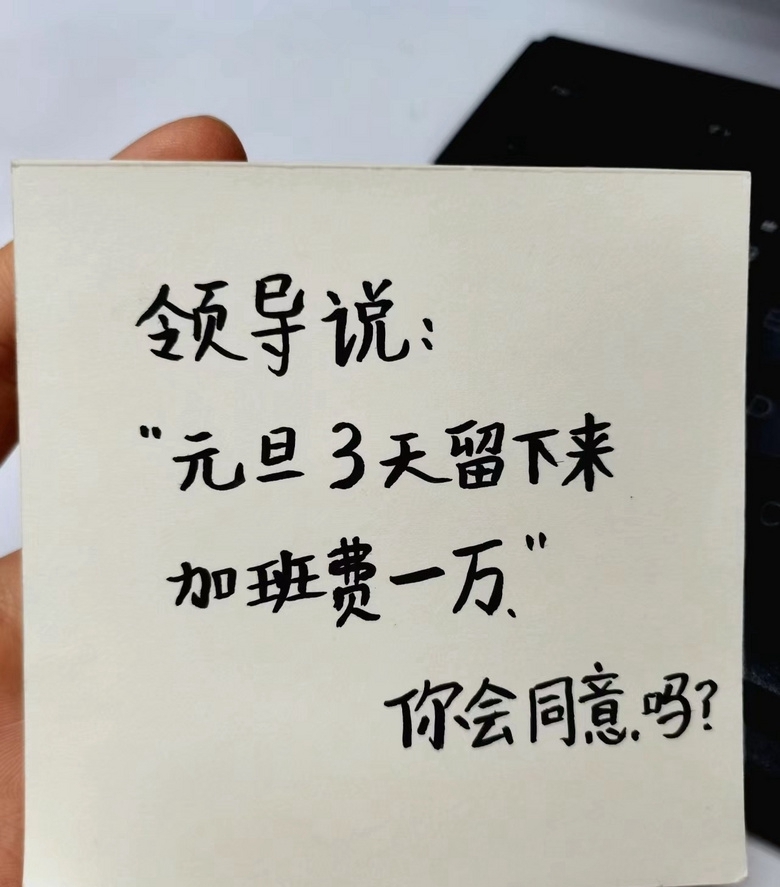 领导说:
"元旦3天留下来
加班费一万."
你会同意.吗?